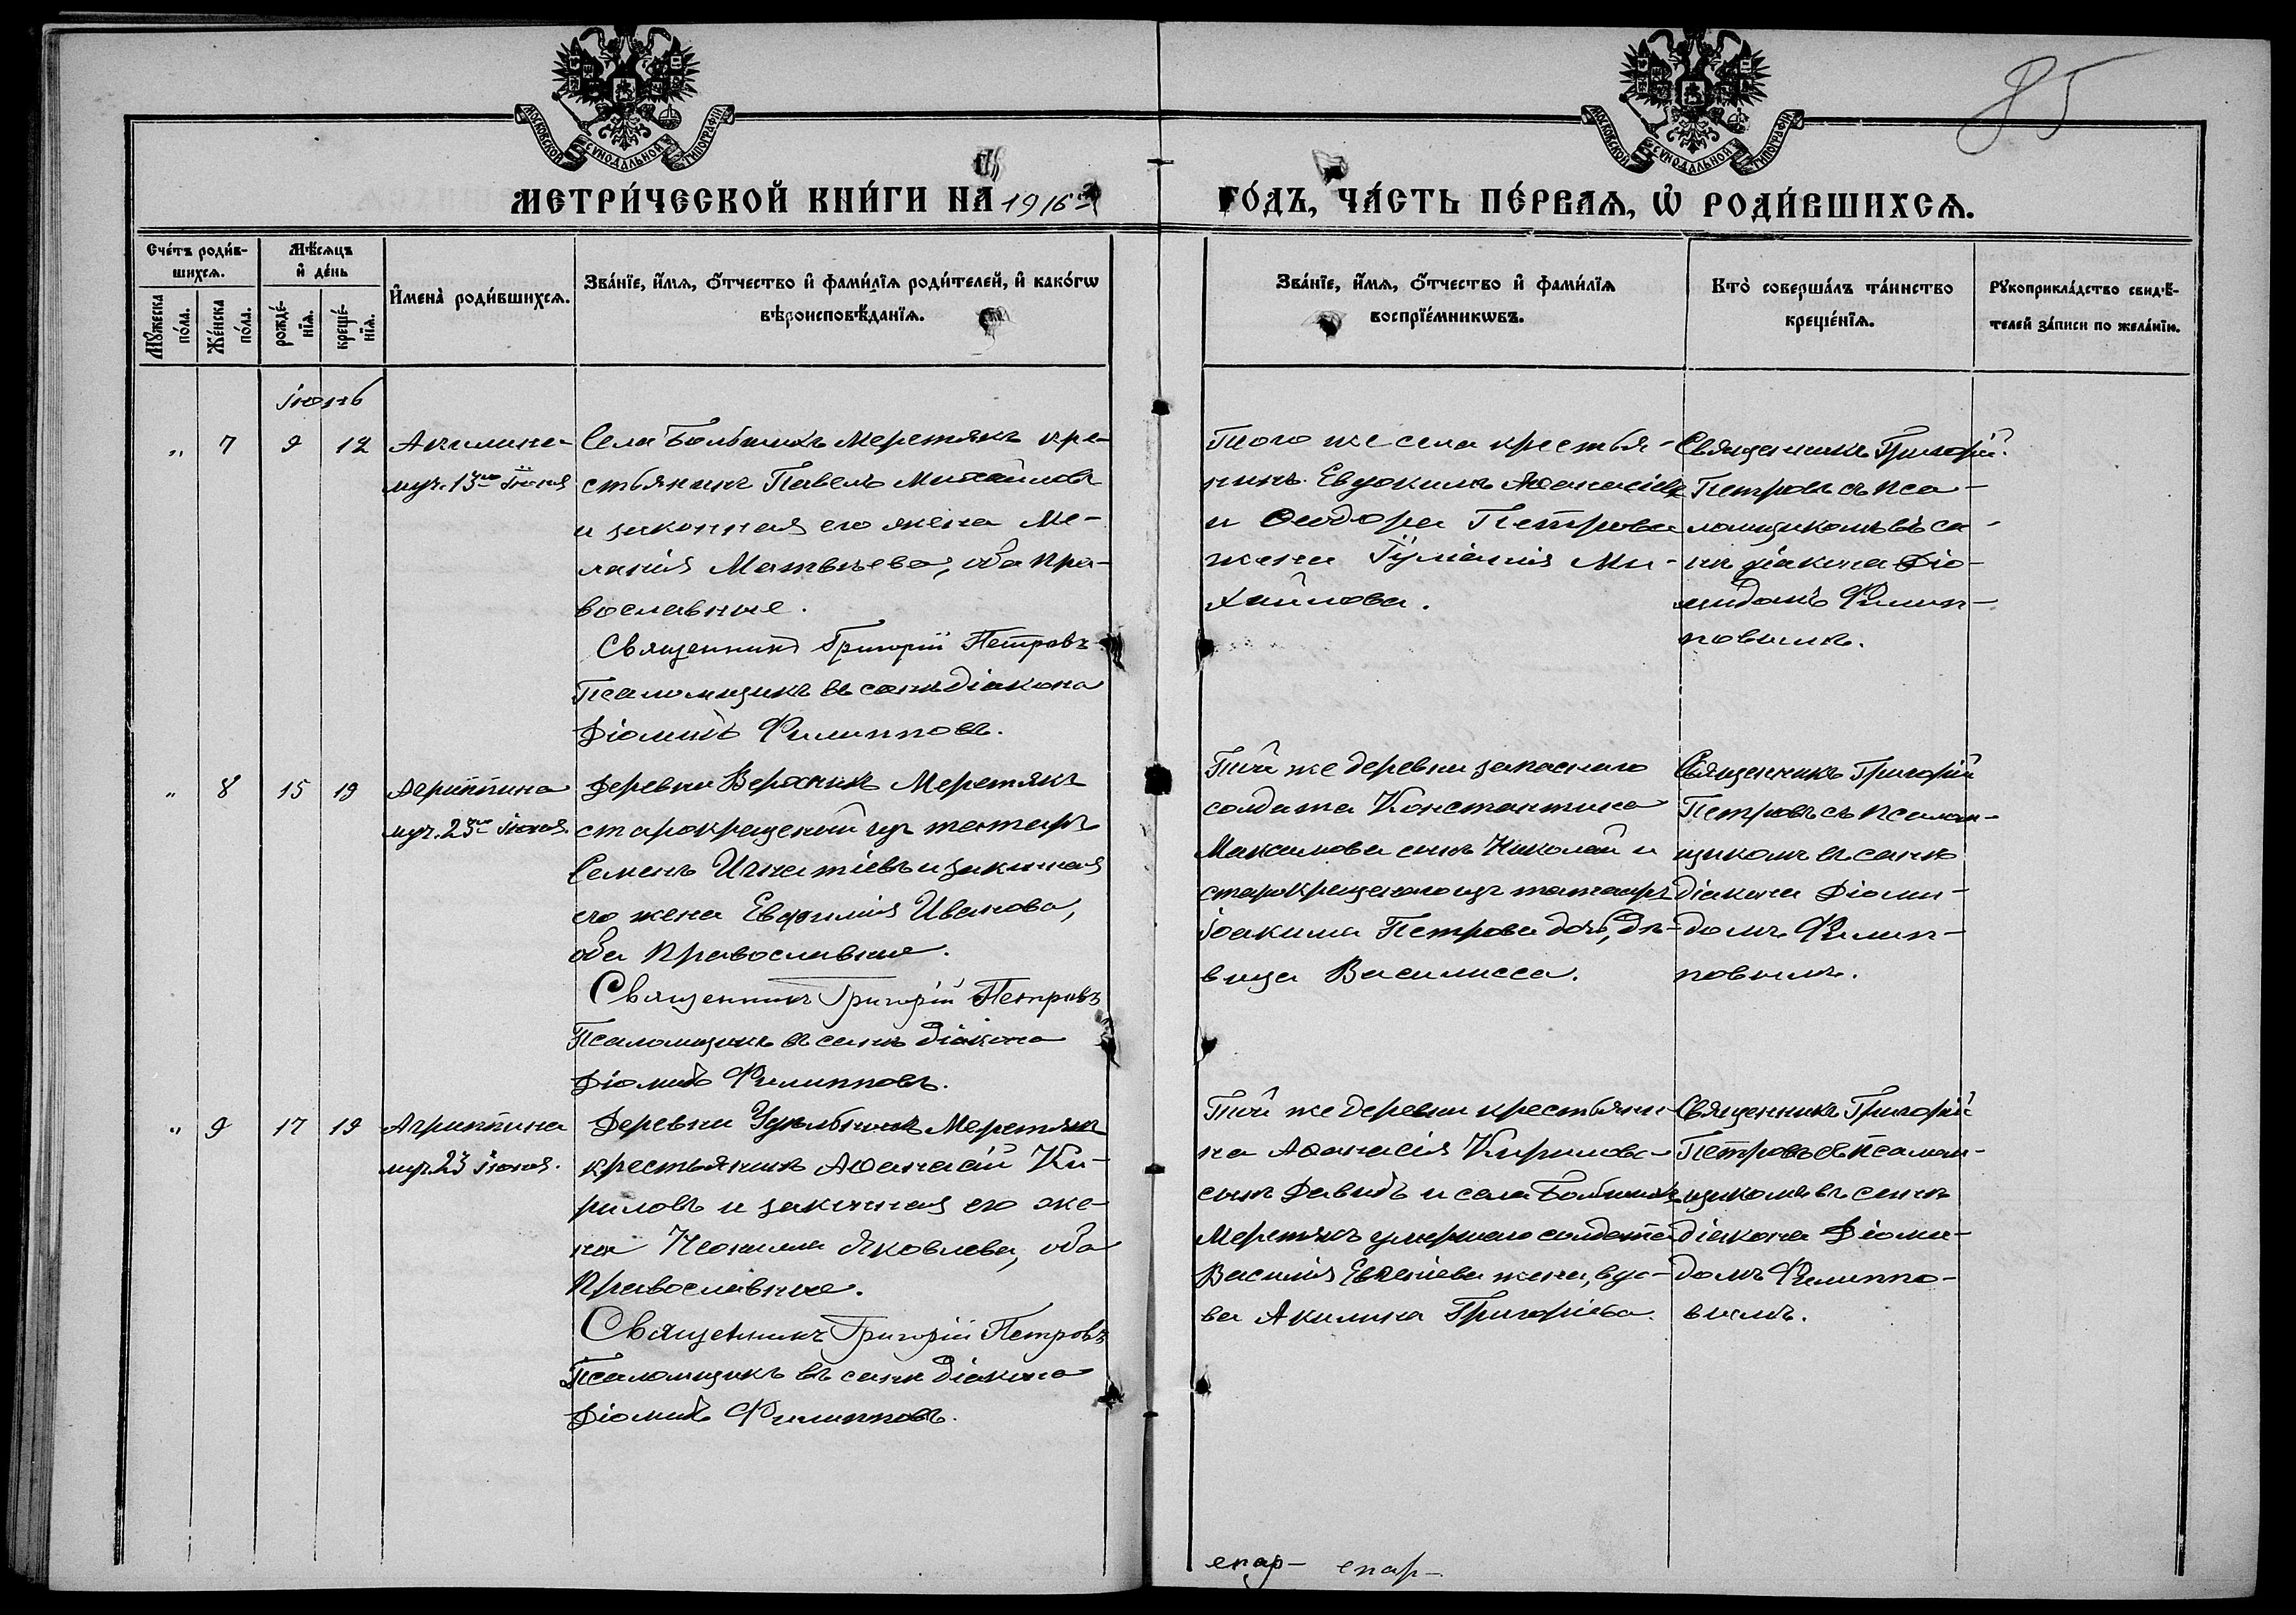 85
МОСКОВСКОЙ СѴНОДАЛЬНОЙ ТИПОГРАФІИ
МОСКОВСКОЙ СѴНОДАЛЬНОЙ ТИПОГРАФІИ
МЕТРИ́ЧЕСКОЙ КНИ́ГИ НА 1916й
ГО́ДЪ, ЧА́СТЬ ПЕ́РВАѦ, Ѡ҆ РОДИ́ВШИХСѦ.
Сче́тъ роди́в-
шихсѧ.
Мꙋ́жеска по́ла.
Же́нска по́ла.
Мѣ́сѧцъ
и҆ де́нь
рожде́-нїѧ.
креще́-нїѧ.
И҆мена̀ роди́вшихсѧ.
Зва́нїе, и҆́мѧ, ѻ҆́тчество и҆ фами́лїѧ роди́телей, и҆ како́гѡ
вѣроисповѣ́данїѧ.
Зва́нїе, и҆́мѧ, ѻ҆́тчество и҆ фами́лїѧ
воспрїе́мникѡвъ.
Кто̀ соверша́лъ та́инство
креще́нїѧ.
Рꙋкоприкла́дство свидѣ́-
телей за́писи по жела́нїю.
іюнь
„ 7 9 12
Акилина
муч. 13го іюня
Села Большихъ Меретякъ кре-
стьянинъ Павелъ Михайловъ
и законная его жена Ме-
ланія Матвѣева, оба пра-
вославные.
Священникъ Григорій Петровъ
Псаломщикъ въ санѣ діакона
Діомидъ Филипповъ.
Того же села крестья-
нинъ Евдокимъ Аѳанасіевъ
и Ѳеодора Петрова
жена Іуліанія Ми-
хайлова.
Священникъ Григорій
Петровъ съ пса-
ломщикомъ въ са-
нѣ діакона Діо-
мидомъ Филип-
повымъ.
„ 8 15 19
Агриппина
муч. 23го іюня.
Деревни Верхнихъ Меретякъ
старокрещеный изъ татаръ
Семенъ Игнатіевъ и законная
его жена Евфимія Иванова,
оба православные.
Священникъ Григорій Петровъ
Псаломщикъ въ санѣ діакона
Діомидъ Филипповъ.
Той же деревни запаснаго
солдата Константина
Максимова сынъ Николай и
старокрещенаго изъ татаръ
Іоакима Петрова дочь, дѣ-
вица Василисса.
Священникъ Григорій
Петровъ съ псалом-
щикомъ въ санѣ
діакона Діоми-
домъ Филип-
повымъ.
„ 9 17 19
Агриппина
муч. 23 іюня.
Деревни Удѣльныхъ Меретякъ
крестьянинъ Аѳанасій Ки-
риловъ и законная его же-
на Неонилла Яковлева, оба
православные.
Священникъ Григорій Петровъ
Псаломщикъ въ санѣ діакона
Діомидъ Филипповъ.
Той же деревни крестьяни-
на Аѳанасія Кирилова
сынъ Давидъ и села Большихъ
Меретякъ умершаго солдата
Василія Евгеніева жена, вдо-
ва Акилина Григоріева.
Священникъ Григорій
Петровъ съ псалом-
щикомъ въ санѣ
діакона Діоми-
домъ Филиппо-
вымъ.
епар- епар-